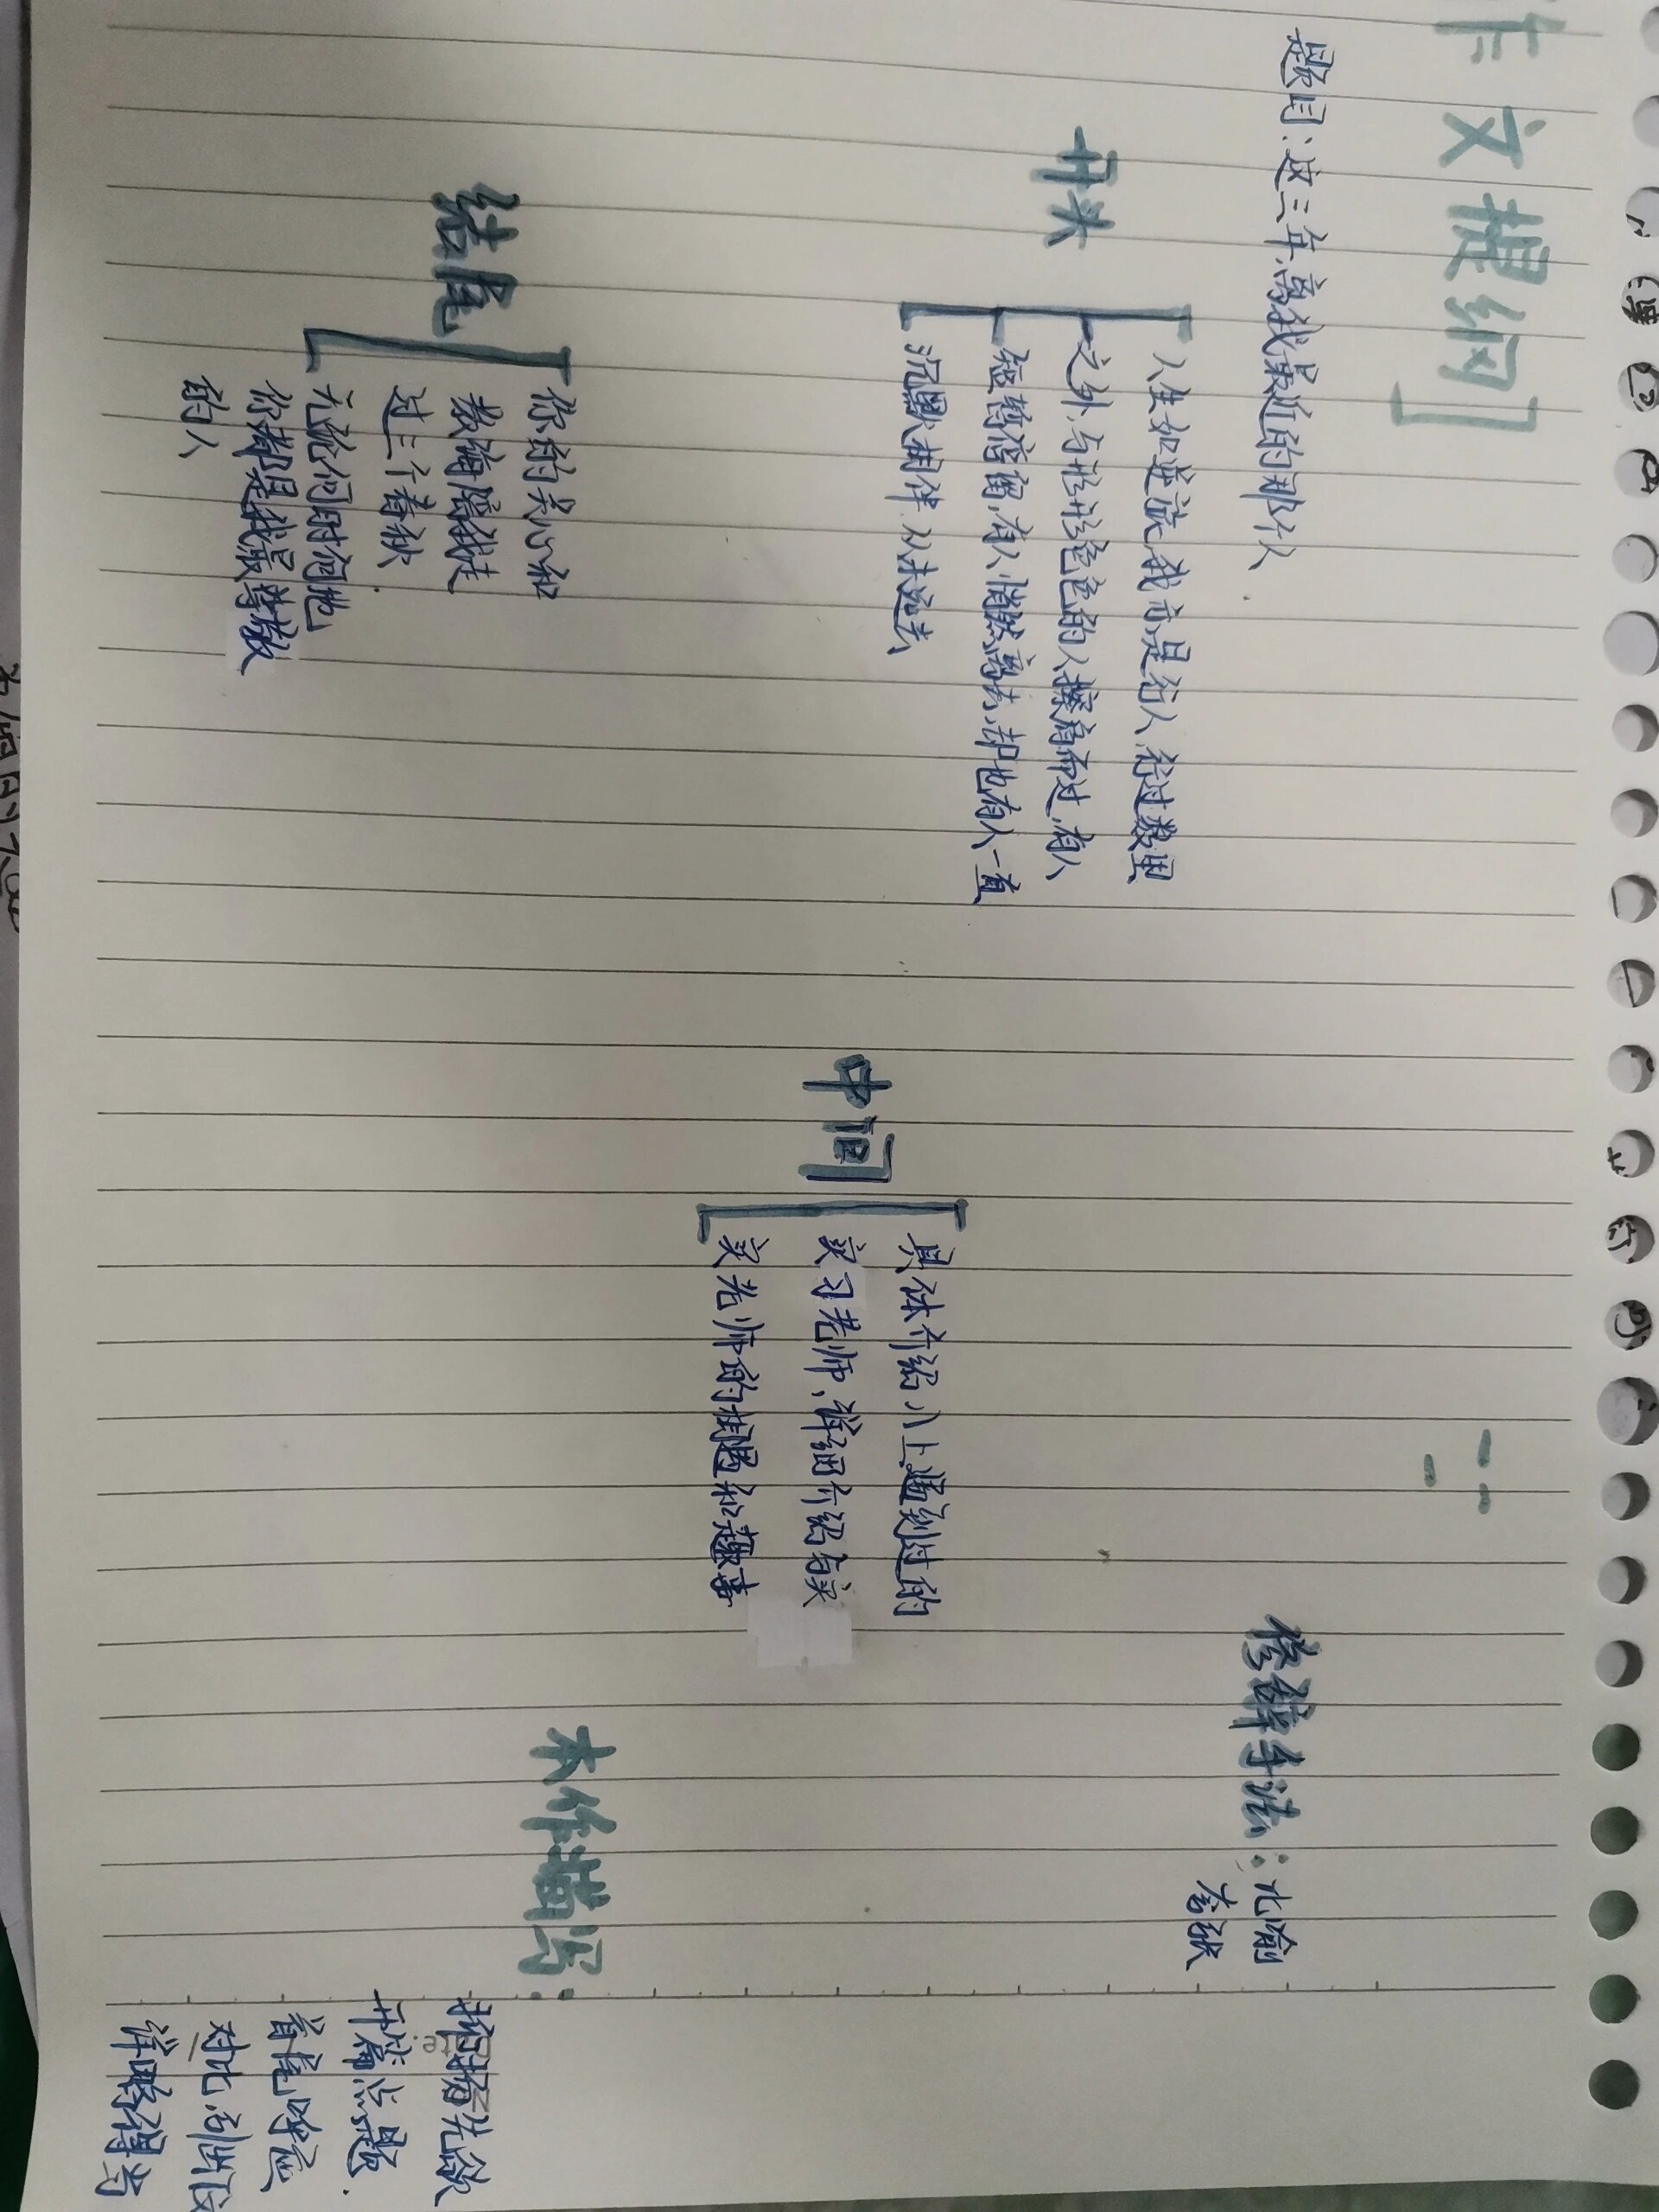 作文提纲
题目:这三年,离我最近的那个人
开头
人生如逆旅,我亦是行人,行过数里
之外,与形形色色的人擦肩而过,有人
短暂停留,有人悄然离去,却也有人一直
沉默相伴,从未远去
中间
具体介绍小上遇到过的
实习老师,详细介绍与实
实老师的相遇和趣事
结尾
你的关心和
教诲陪我走
过三个春秋
无论何时何地
你都是我最尊敬
的人
修辞手法:比喻
夸张
本作描写:
欲扬先
开篇点题
首尾呼应
对比
详略得当